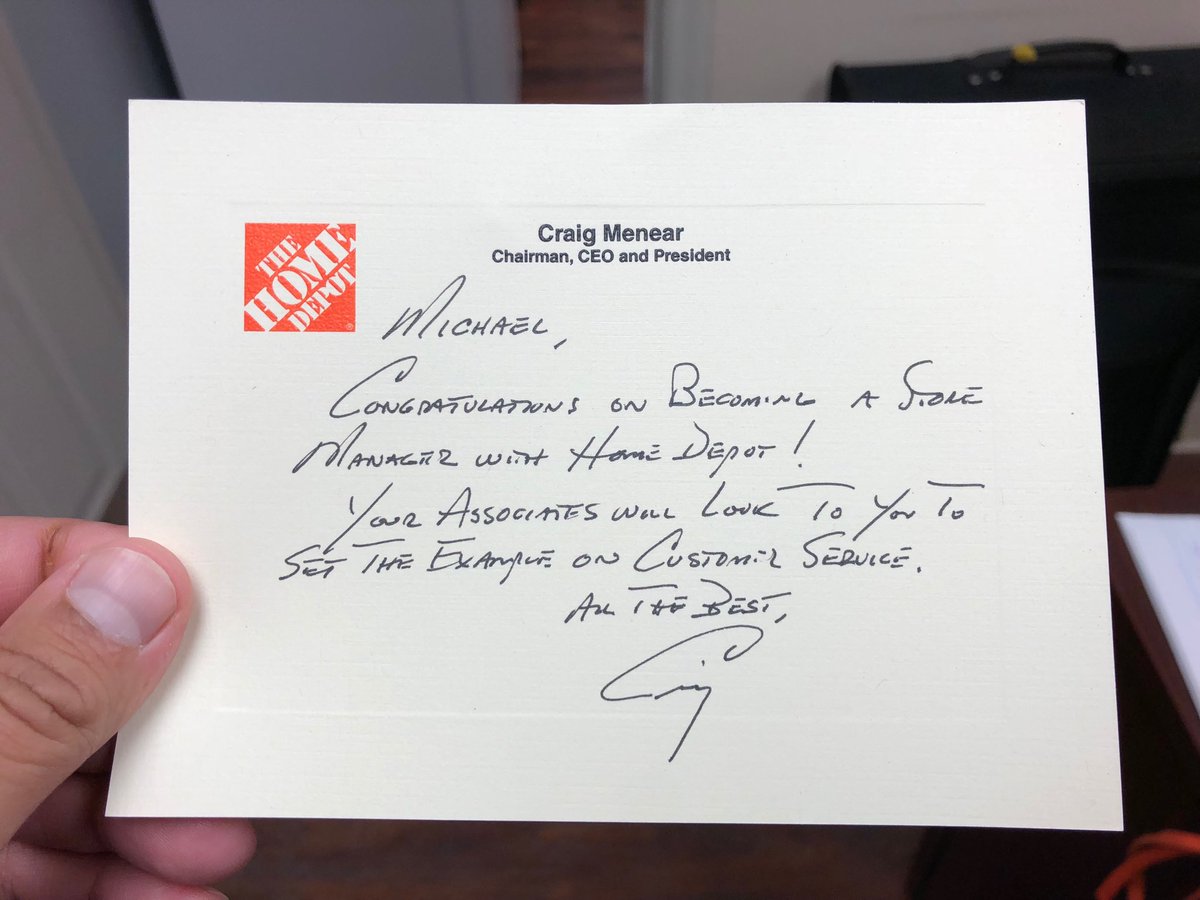 THE
HOME
DEPOT
®
Craig Menear
Chairman, CEO and President
MICHAEL,
CONGRATULATIONS ON BECOMING A STORE
MANAGER WITH HOME DEPOT!
YOUR ASSOCIATES WILL LOOK TO YOU TO
SET THE EXAMPLE ON CUSTOMER SERVICE.
ALL THE BEST,
Craig